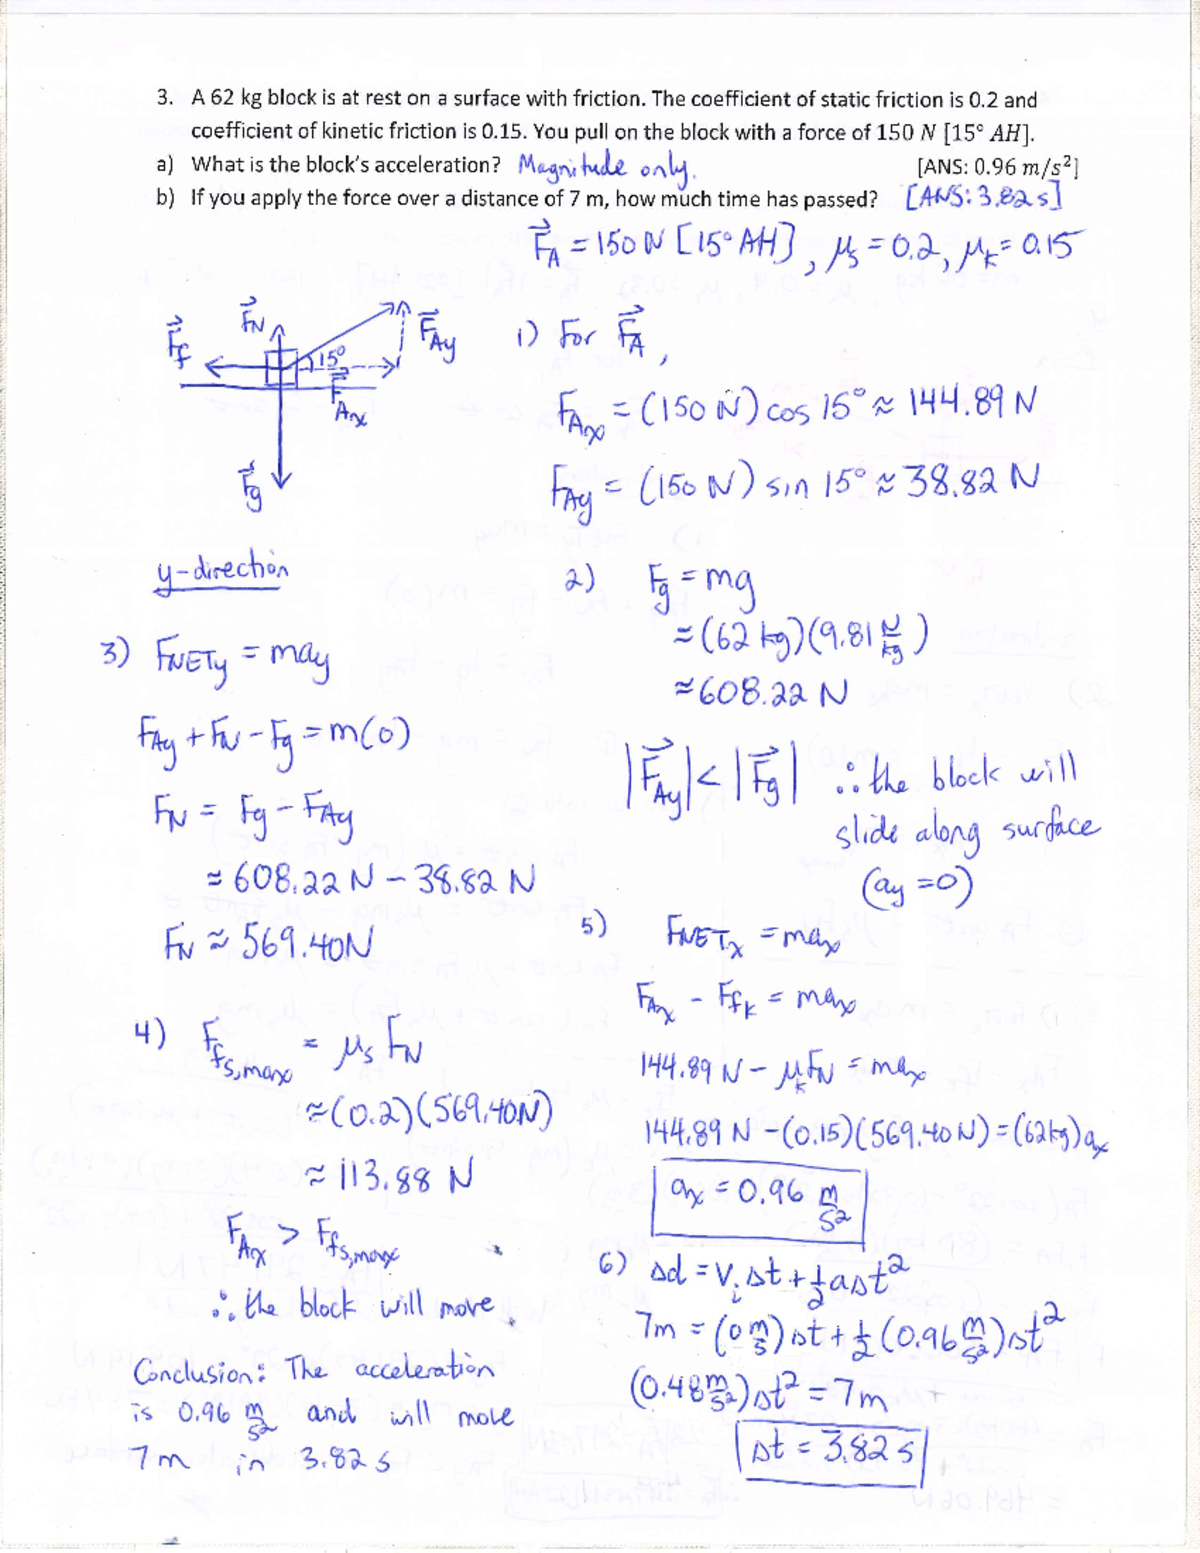 3. A 62 kg block is at rest on a surface with friction. The coefficient of static friction is 0.2 and
coefficient of kinetic friction is 0.15. You pull on the block with a force of 150 N [15° AH].
a) What is the block's acceleration? Magnitude only. [ANS: 0.96 m/s²]
b) If you apply the force over a distance of 7 m, how much time has passed? [ANS: 3.82 s]
F⃗A = 150 N [15° AH], μs = 0.2, μk = 0.15
F⃗f
F⃗N
15°
F⃗Ax
F⃗Ay
F⃗g
1) For F⃗A,
FAx = (150 N) cos 15° ≈ 144.89 N
FAy = (150 N) sin 15° ≈ 38.82 N
2) Fg = mg
= (62 kg)(9.81 N/kg)
≈ 608.22 N
|F⃗Ay| < |F⃗g| ∴ the block will
slide along surface
(ay = 0)
y-direction
3) FNETy = may
FAy + FN - Fg = m(0)
FN = Fg - FAy
≈ 608.22 N - 38.82 N
FN ≈ 569.40N
4) Ffs,max = μs FN
≈ (0.2)(569.40N)
≈ 113.88 N
FAx > Ffs,max
∴ the block will move.
5) FNETx = max
FAx - Ffk = max
144.89 N - μkFN = max
144.89 N - (0.15)(569.40 N) = (62kg)ax
ax = 0.96 m/s²
6) Δd = ViΔt + ½aΔt²
7m = (0 m/s)Δt + ½(0.96 m/s²)Δt²
(0.48 m/s²)Δt² = 7m
Δt = 3.82 s
Conclusion: The acceleration
is 0.96 m/s² and will move
7 m in 3.82 s